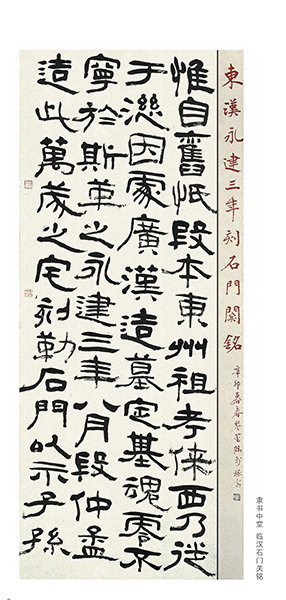 東漢永建三年刻石門闕銘
惟自舊段本東州祖考徠西乃徙
于因處廣漢造墓定基魂零不
寧於斯革之永建三年八月段仲孟
造此萬歲之宅刻勒石門以示子孫
辛卯暮春
隶书中堂 临汉石门关铭